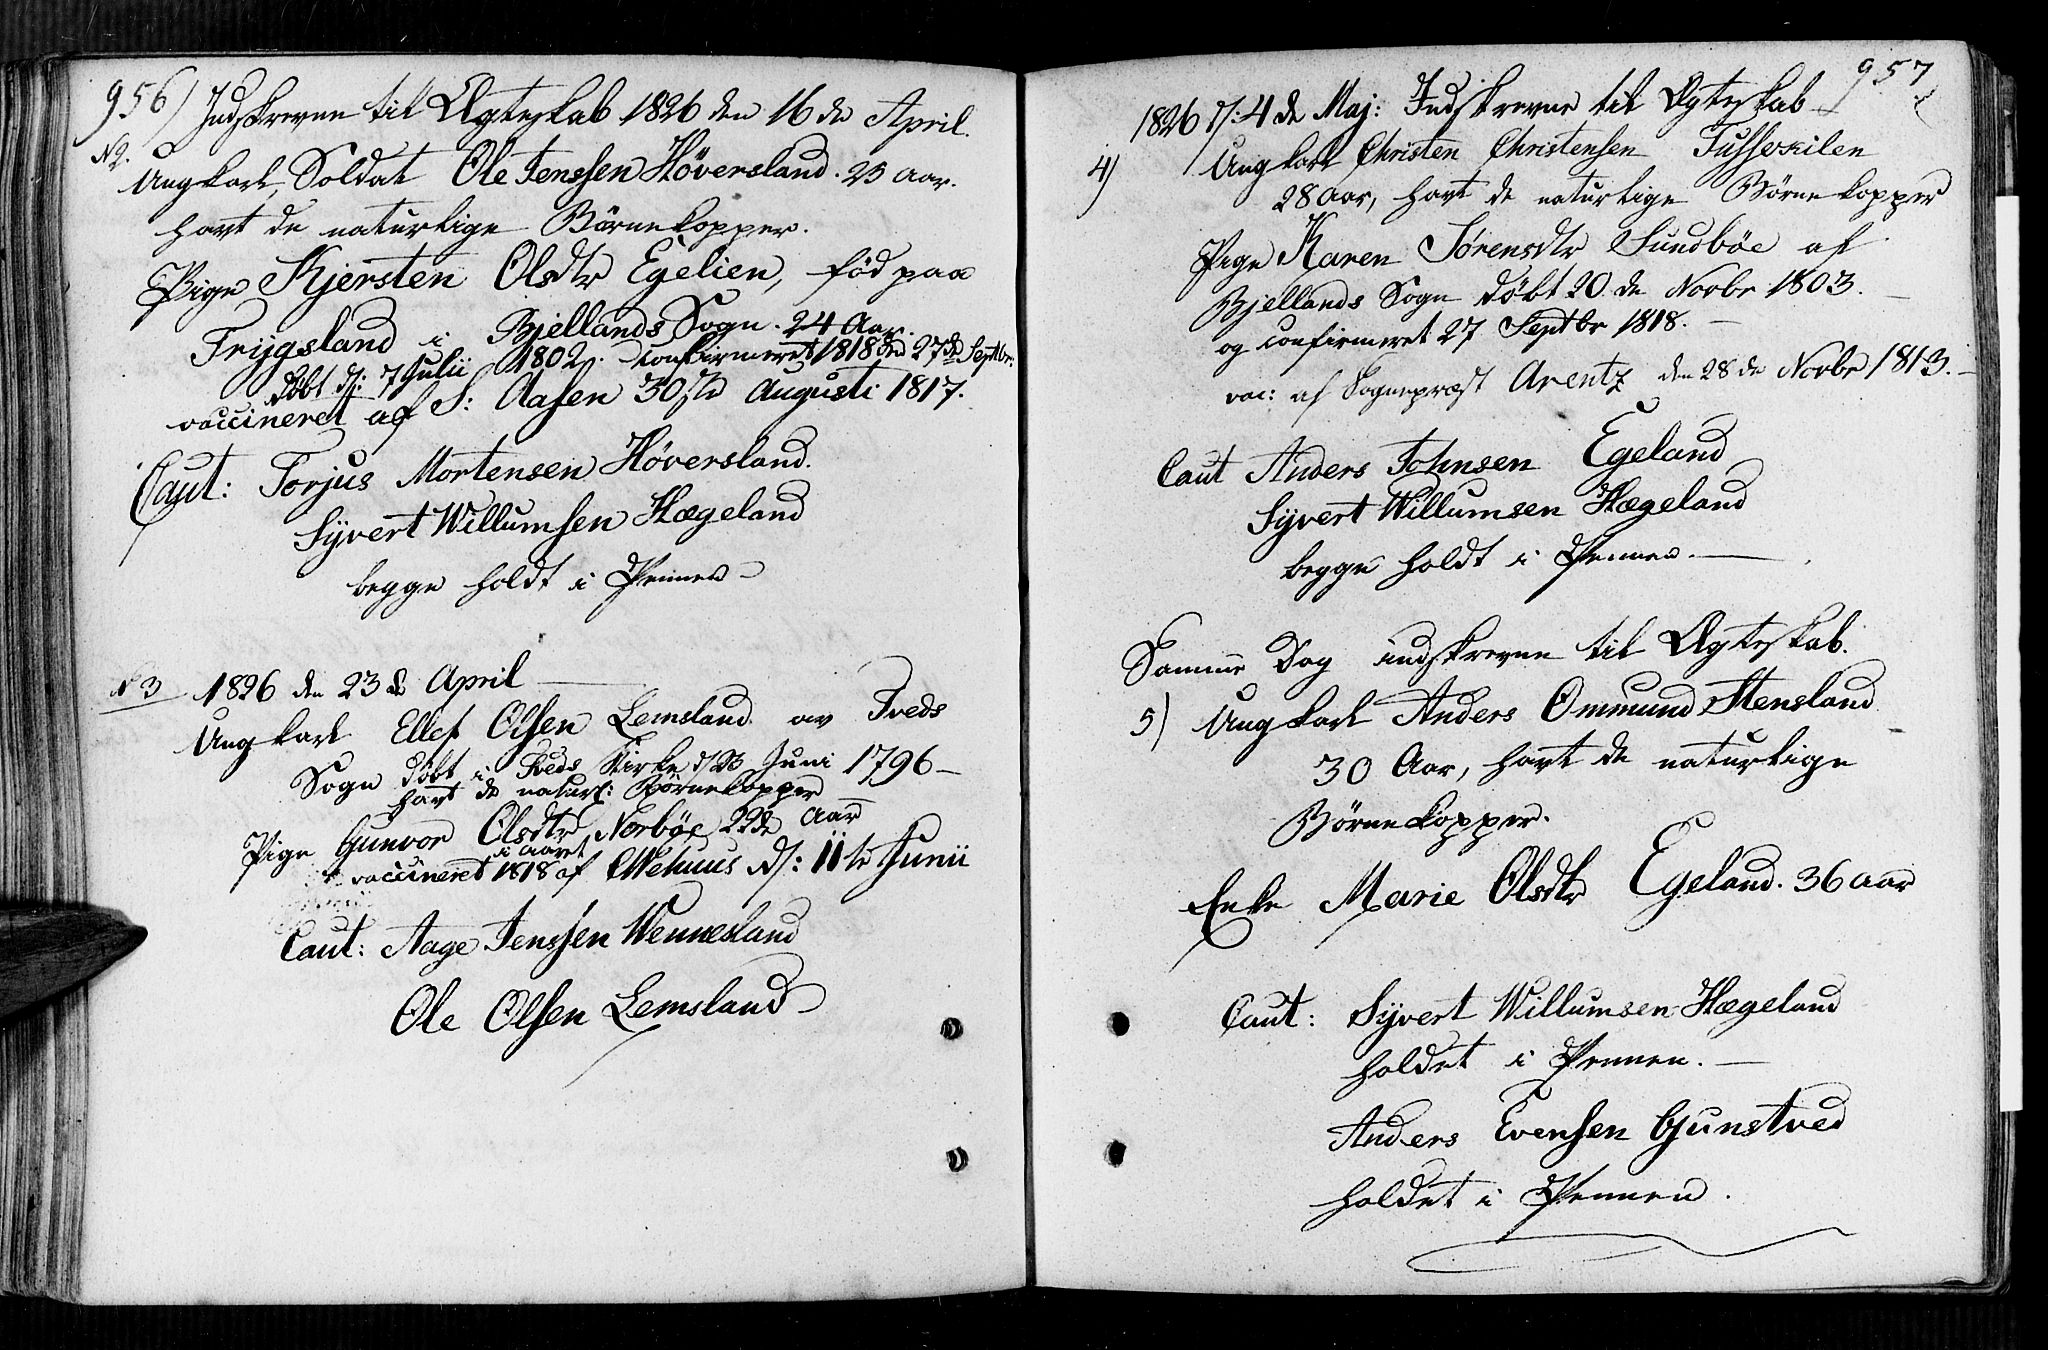 956) Indskrevne til Ægteskab 1826 den 16de April.
N2.
Ungkarl, Soldat Ole Jenssen Höversland. 25 Aar.
havt de naturlige Börnekopper.
Pige Kjersten Olsdtr Egelien, född paa
Trygsland i Bjellands Sogn. 24 Aar.
döbt d: 7 Julii 1802. confirmeret 1818 den 27de Septbr:
vaccineret af S: Aasen 30te Augusti 1817.
Caut: Torjus Mortensen Höversland.
Syvert Willumsen Hægeland
begge holdt i Pennen –
N 3 1826 den 23de April
Ungkarl Ellef Olsen Lemsland av Iveds
Sogn döbt i Iveds Kirke d. 23 Juni 1796 –
havt de naturl: Börnekopper
Pige Gunvor Olsdtr Norböe, 22de Aar
i aaret
vaccineret 1818 af Wehuus d: 11te Junii
Caut: Aage Jenssen Wennesland
Ole Olsen Lemsland
957
1826 d: 4de Maj: Indskrevne til Ægteskab
4) Ungkarl Christen Christensen Tusserkilen
28 Aar, havt de naturlige Börnekopper
Pige Karen Sörensdtr Sundböe af
Bjellands Sogn döbt 20de Novbr 1803.
og confirmeret 27 Septbr 1818. –
vac: af Sognepræst Arentz den 28de Novbr 1813. –
Caut Anders Johnsen Egeland
Syvert Willumsen Hægeland
begge holdt i Pennen. –
Samme Dag indskrevne til Ægteskab.
5) Ungkarl Anders Ommund Stensland
30 Aar, havt de naturlige
Börnekopper.
Enke Marie Olsdtr Egeland. 36 aar
Caut: Syvert Willumsen Hægeland
holdet i Pennen. –
Anders Evensen Gunstved
holdet i Pennen.